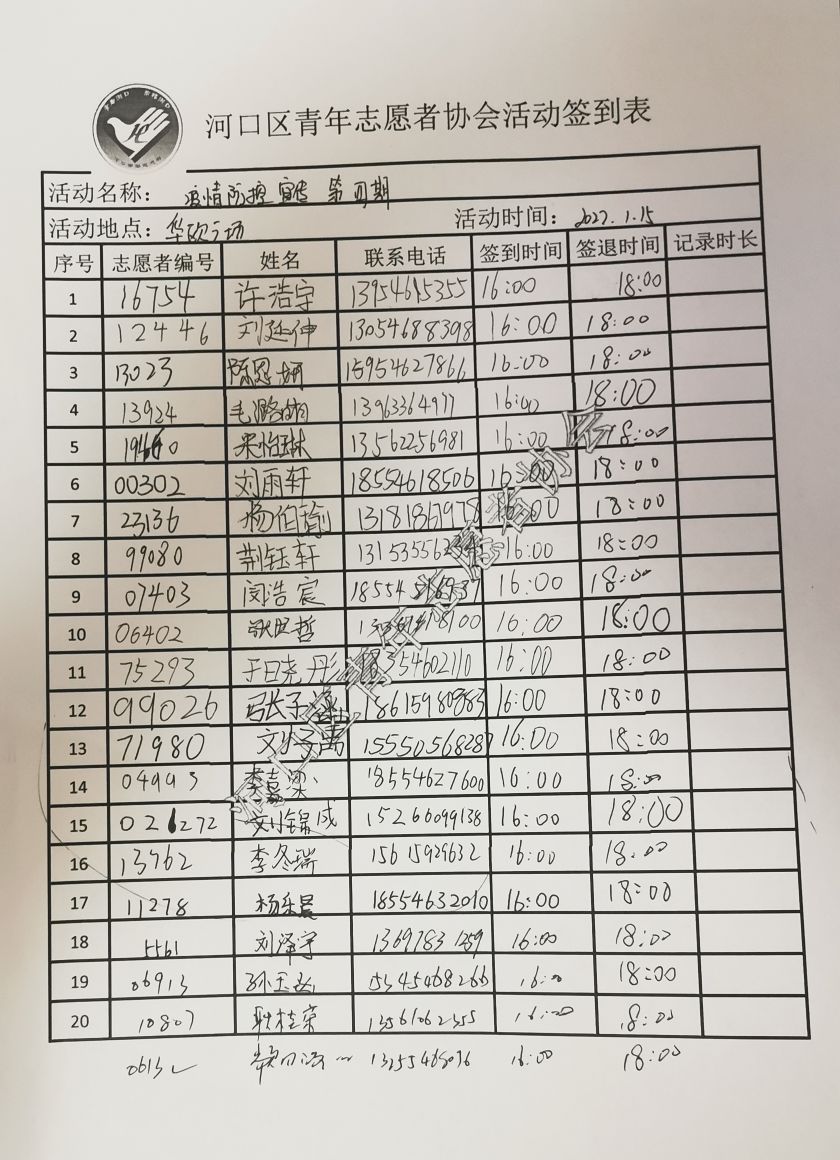 河口区青年志愿者协会活动签到表
活动名称： 疫情防控宣传 第四期
活动地点： 华欧广场 活动时间： 2022.1.15
序号 志愿者编号 姓名 联系电话 签到时间 签退时间 记录时长
1 16754 许浩宇 13954615355 16:00 18:00
2 12446 刘延伸 13054688398 16:00 18:00
3 13023 陈思妍 15954627866 16:00 18:00
4 13924 毛潞 13963364977 16:00 18:00
5 宋怡琳 13562256981 16:00 18:00
6 00302 刘雨轩 18554618506 16:00 18:00
7 23136 杨伯瑜 13181867978 16:00 18:00
8 99080 荆钰轩 16:00 18:00
9 07403 闵浩宸 16:00 18:00
10 06402 16:00 18:00
11 75293 于曰尧彤 16:00 18:00
12 99026 张子 18615980983 16:00 18:00
13 71980 刘子禹 15550568287 16:00 18:00
14 李嘉梁 18554627600 16:00 18:00
15 026272 刘锦成 15266099138 16:00 18:00
16 13762 李冬瑞 15615929632 16:00 18:00
17 11278 杨乐晨 18554632010 16:00 18:00
18 5561 刘泽宇 16:00 18:00
19 06913 孙玉 16:00 18:00
20 10807 耿桂荣 13561062355 16:00 18:00
16:00 18:00